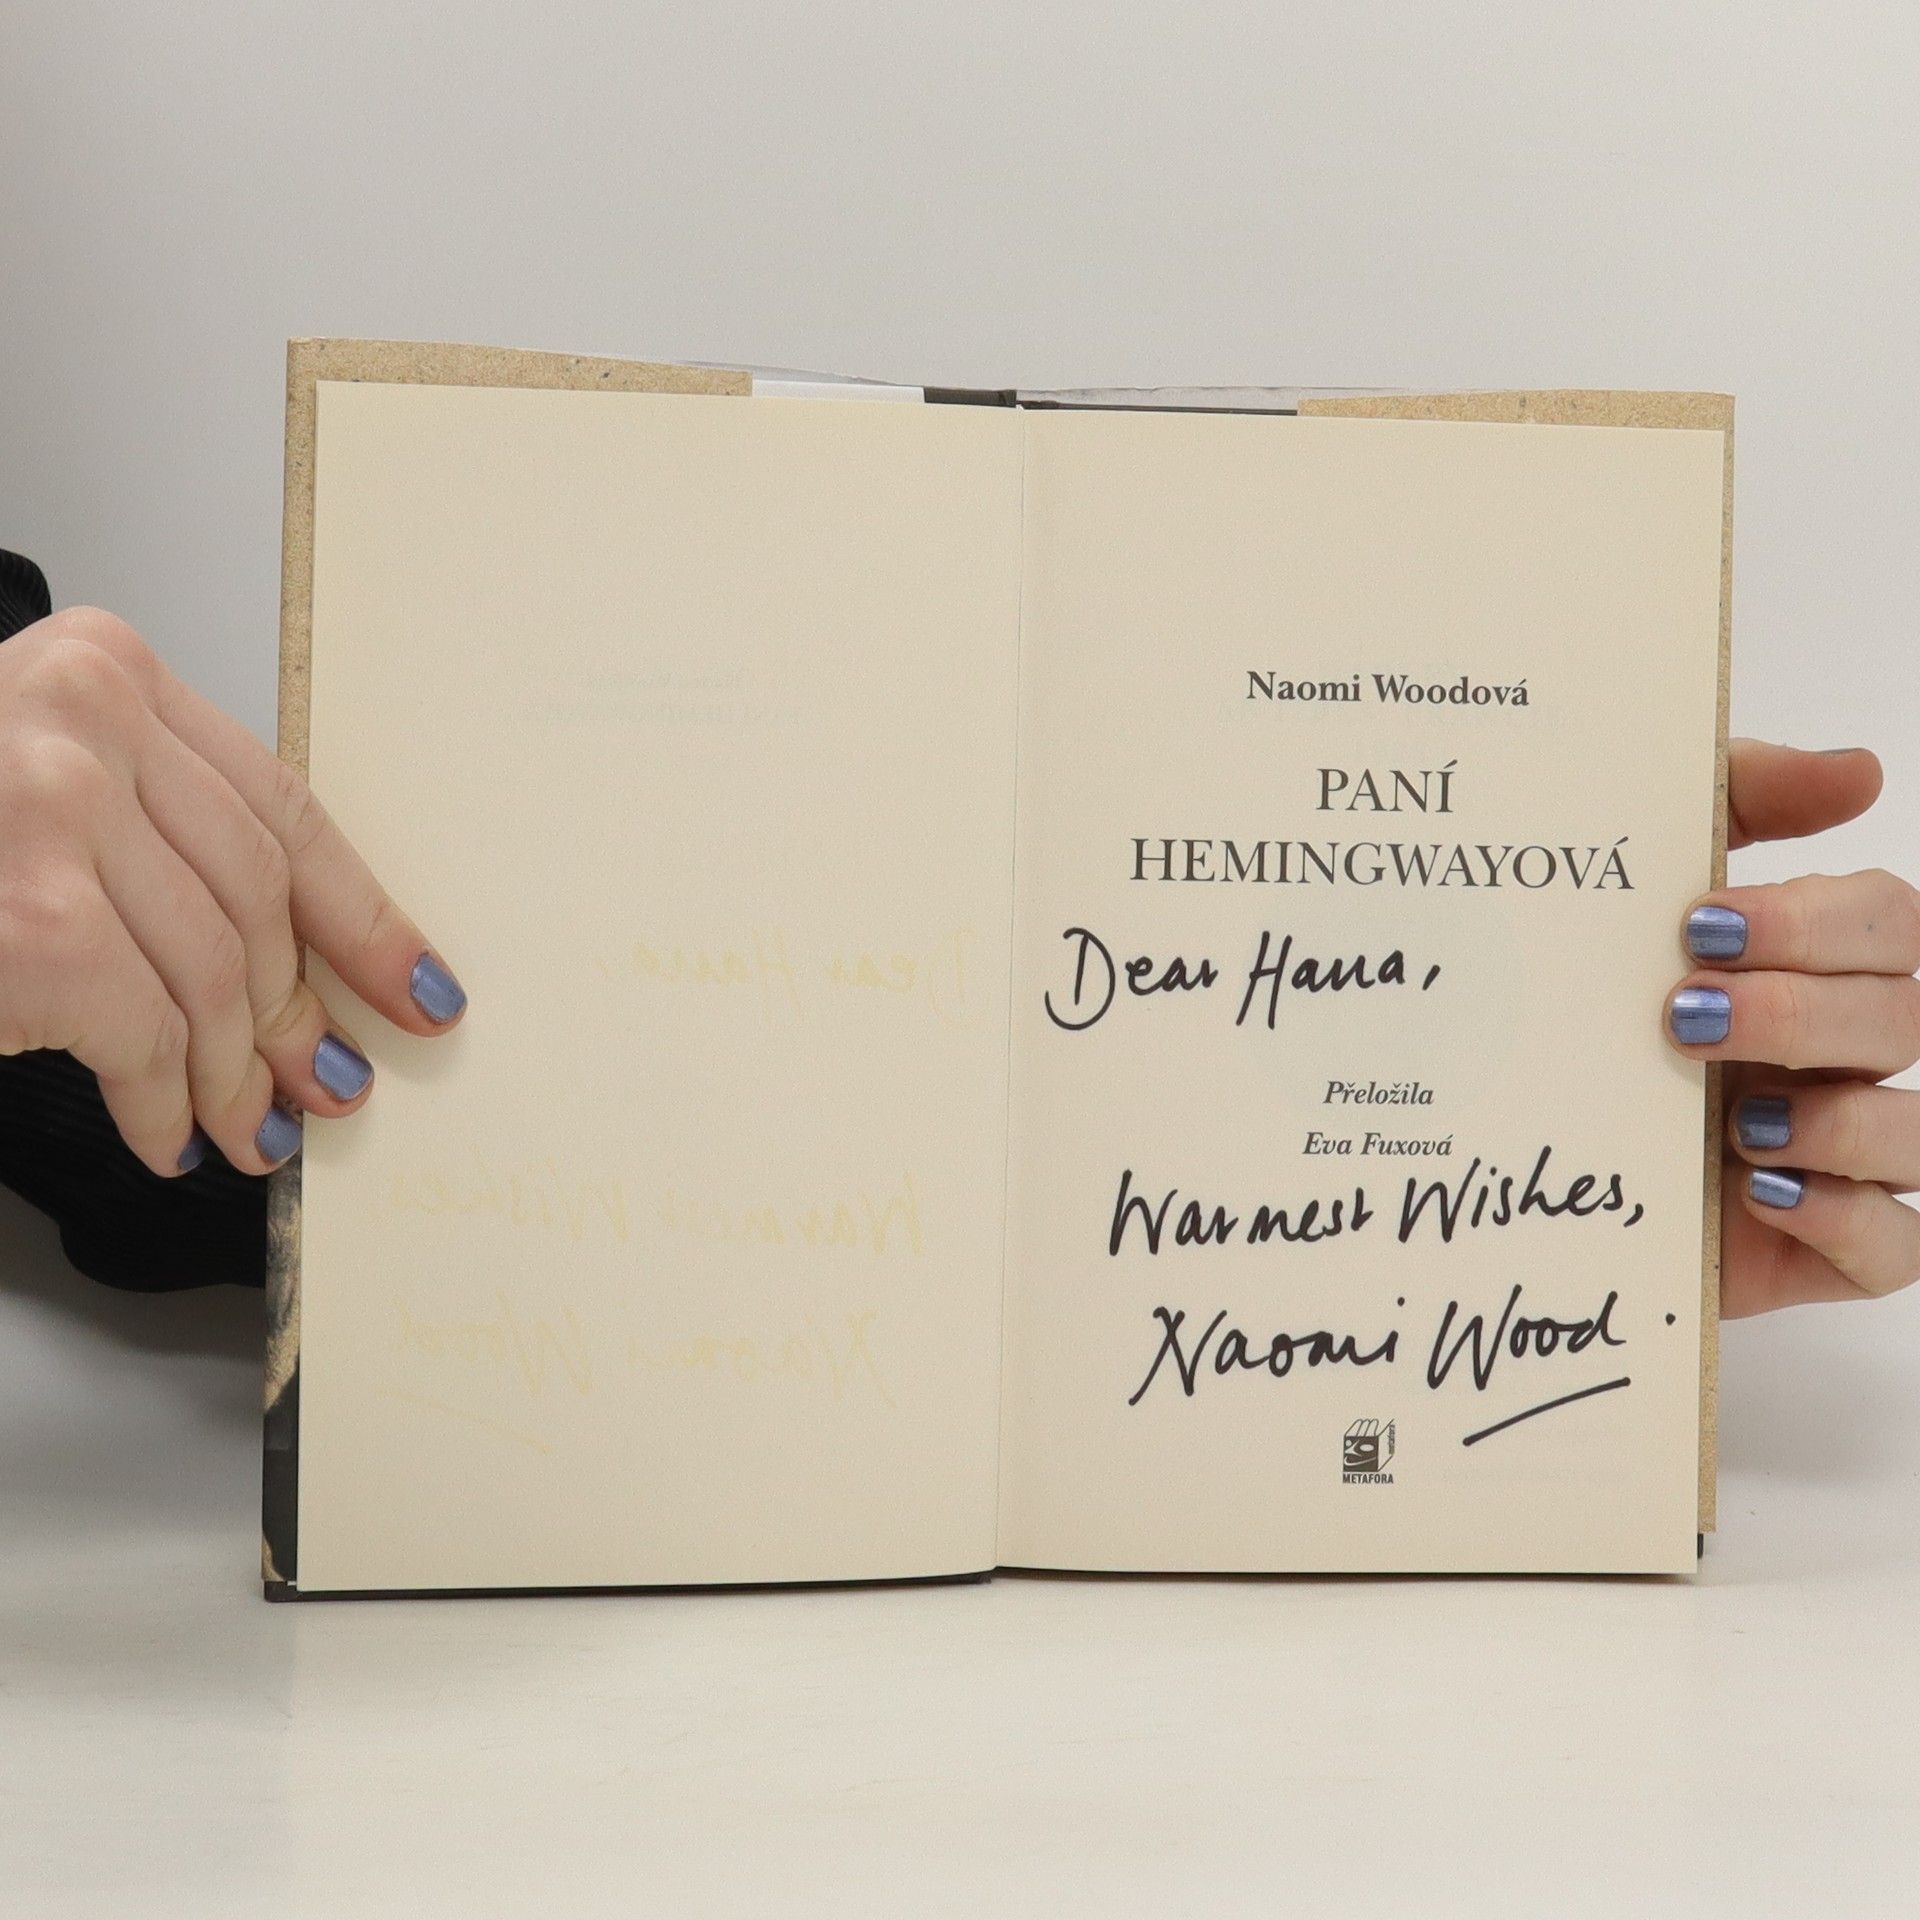 Naomi Woodová
PANÍ
HEMINGWAYOVÁ
Dear Hana,
Přeložila
Eva Fuxová
Warmest Wishes,
Naomi Wood.
metafora
METAFORA